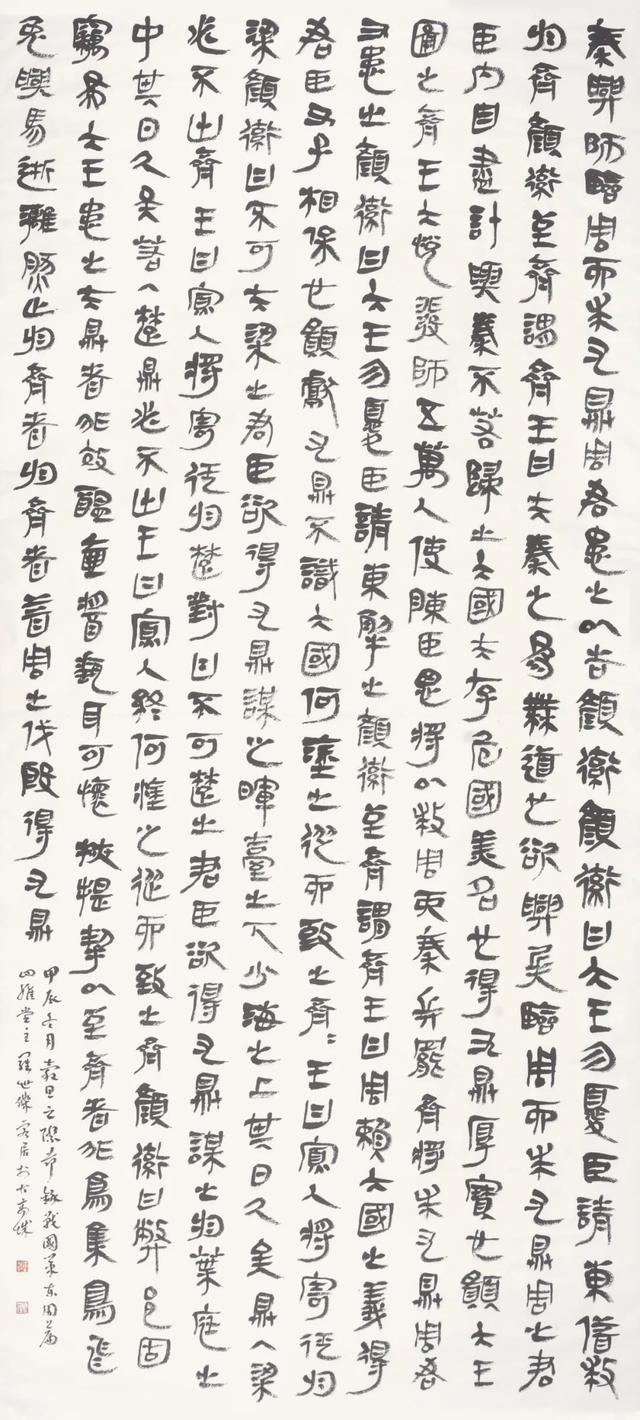 秦興師臨周而求九鼎周君患之以告顏率顏率曰大王勿憂臣請東借救
於齊顏率至齊謂齊王曰夫秦之為無道也欲興兵臨周而求九鼎周之君
臣內自盡計與秦不若歸之大國夫存危國美名也得九鼎厚寶也願大王
圖之齊王大悅發師五萬人使陳臣思將以救周而秦兵罷齊將求九鼎周君
又患之顏率曰大王勿憂臣請東解之顏率至齊謂齊王曰周賴大國之義得
君臣父子相保也願獻九鼎不識大國何塗之從而致之齊〻王曰寡人將寄徑於
梁顏率曰不可夫梁之君臣欲得九鼎謀之暉臺之下少海之上其日久矣鼎入梁
必不出齊王曰寡人將寄徑於楚對曰不可楚之君臣欲得九鼎謀之於葉庭之
中其日久矣若入楚鼎必不出王曰寡人終何塗之從而致之齊顏率曰弊邑固
竊為大王患之夫鼎者非效醯壺醬甀耳可懷挾提挈以至齊者非鳥集烏飛
兔興馬逝灕然止於齊者於齊者昔周之伐殷得九鼎
甲辰冬月穀旦之際節錄戰國策東周篇
堂主世傑客居於古